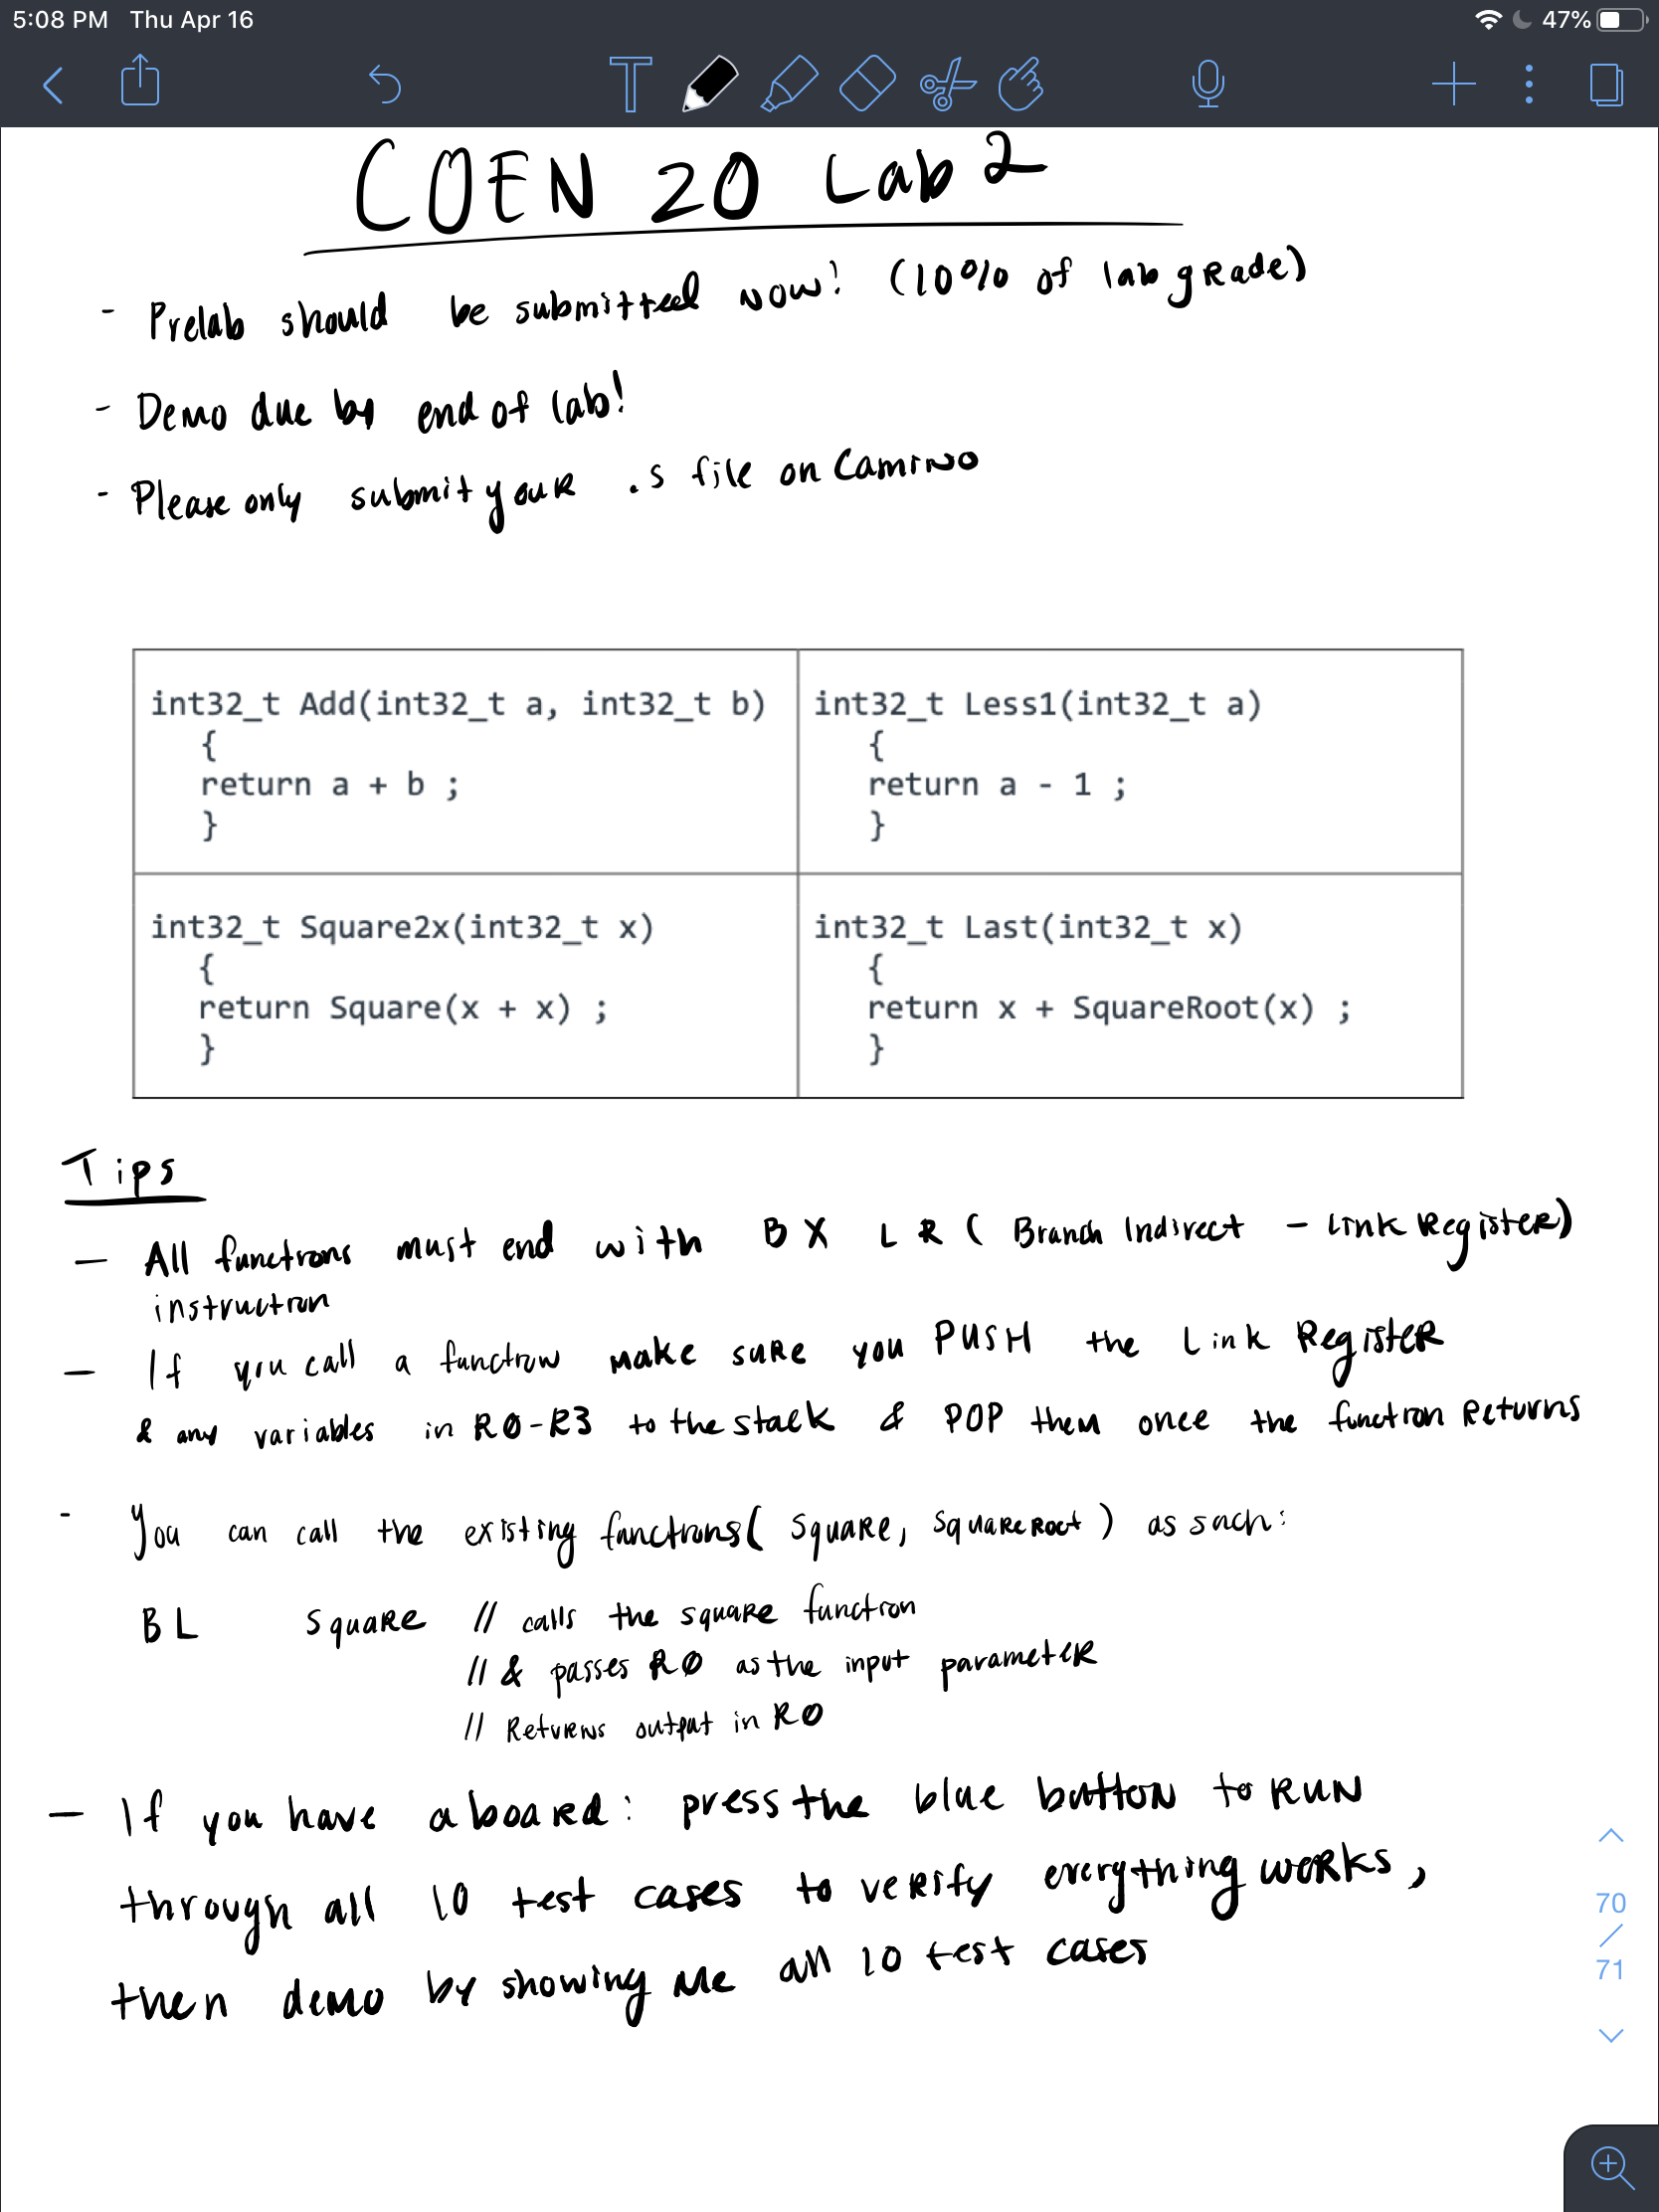 5:08 PM Thu Apr 16
47%
T
COEN 20 Lab 2
- Prelab should be submitted now! (10% of lab grade)
- Demo due by end of lab!
- Please only submit your .s file on Camino
int32_t Add(int32_t a, int32_t b)
{
return a + b ;
}
int32_t Less1(int32_t a)
{
return a - 1 ;
}
int32_t Square2x(int32_t x)
{
return Square(x + x) ;
}
int32_t Last(int32_t x)
{
return x + SquareRoot(x) ;
}
Tips
- All functions must end with BX LR (Branch Indirect - Link Register)
instruction
- If you call a function make sure you PUSH the Link Register
& any variables in R0-R3 to the stack & POP them once the function returns
- You can call the existing functions (Square, SquareRoot) as such:
BL Square // calls the square function
// & passes R0 as the input parameter
// Returns output in R0
- If you have a board: press the blue button to run
through all 10 test cases to verify everything works,
then demo by showing me all 10 test cases
70
/
71